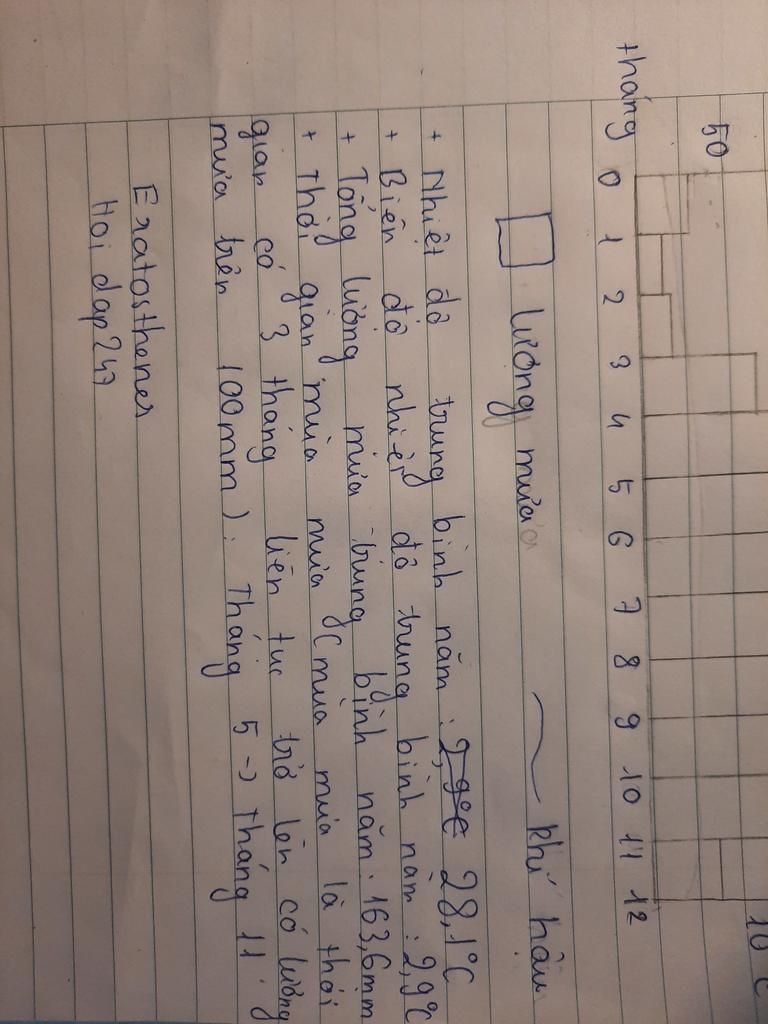 50
10 C
tháng 0 1 2 3 4 5 6 7 8 9 10 11 12
lượng mưa khí hậu
+ Nhiệt độ trung bình năm : 2,9°C 28,1°C
+ Biên độ nhiệt độ trung bình năm : 2,9°C
+ Tổng lượng mưa trung bình năm : 163,6mm
+ Thời gian mùa mưa (mùa mưa là thời
gian có 3 tháng liên tục trở lên có lượng
mưa trên 100mm) : Tháng 5 -> tháng 11.
Eratosthenes
Hoi dap247